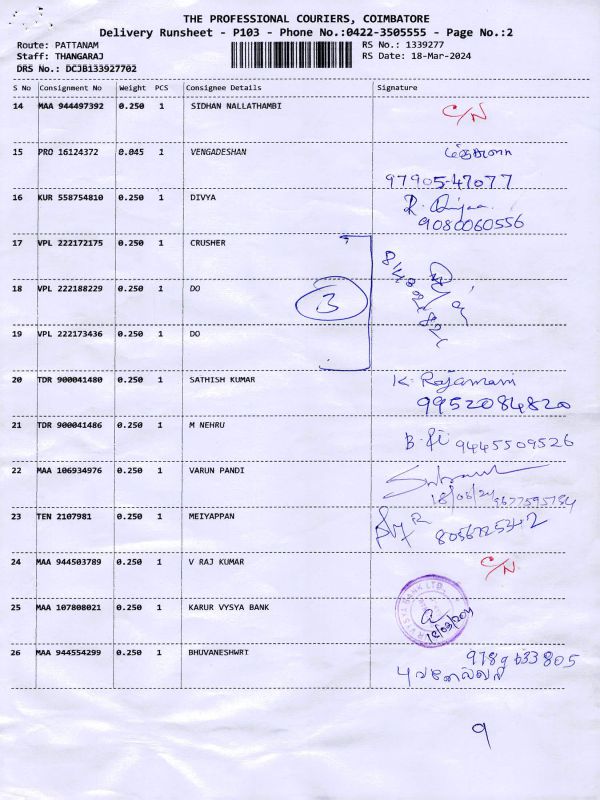 THE PROFESSIONAL COURIERS, COIMBATORE
Delivery Runsheet - P103 - Phone No.:0422-3505555 - Page No.:2
Route: PATTANAM RS No.: 1339277
Staff: THANGARAJ RS Date: 18-Mar-2024
DRS No.: DCJB133927702
S No Consignment No Weight PCS Consignee Details Signature
14 MAA 944497392 0.250 1 SIDHAN NALLATHAMBI C/N
15 PRO 16124372 0.045 1 VENGADESHAN
97905-47077
16 KUR 558754810 0.250 1 DIVYA R. Divya
9080060556
17 VPL 222172175 0.250 1 CRUSHER
18 VPL 222188229 0.250 1 DO 3
19 VPL 222173436 0.250 1 DO
20 TDR 900041480 0.250 1 SATHISH KUMAR K. Rajamani
9952084820
21 TDR 900041486 0.250 1 M NEHRU 9445509526
22 MAA 106934976 0.250 1 VARUN PANDI
23 TEN 2107981 0.250 1 MEIYAPPAN
24 MAA 944503789 0.250 1 V RAJ KUMAR C/N
25 MAA 107808021 0.250 1 KARUR VYSYA BANK
26 MAA 944554299 0.250 1 BHUVANESHWRT
9